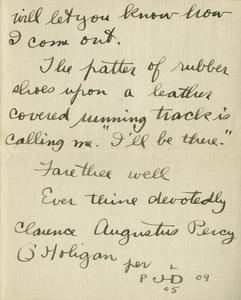 will let you know how
I come out.
The patter of rubber
shoes upon a leather
covered running track is
calling me. "I'll be there."
Fare thee well
Ever thine devotedly
Clarence Augustus Percy
O'Holigan per
L
P J-D 09
05